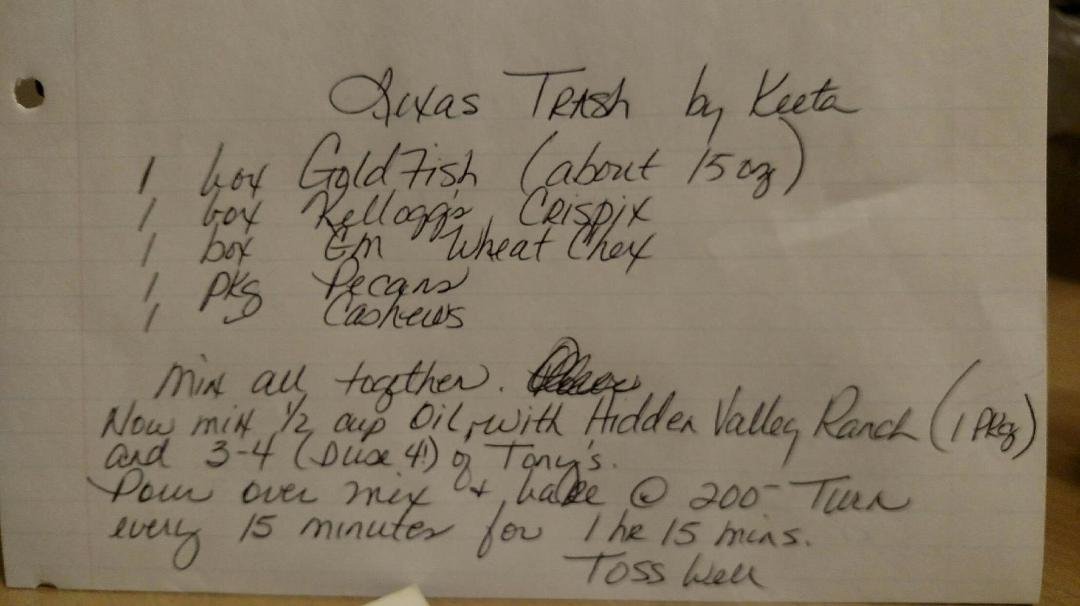 Texas Trash by Keeta
1 box Goldfish (about 15 oz)
1 box Kellogg's Crispix
1 box GM Wheat Chex
1 pkg Pecans
1 " Cashews
Mix all together.
Now mix 1/2 cup Oil, with Hidden Valley Ranch (1 pkg)
and 3-4 (I use 4!) of Tony's.
Pour over mix + bake @ 200° Turn
every 15 minutes for 1 hr 15 mins.
Toss Well